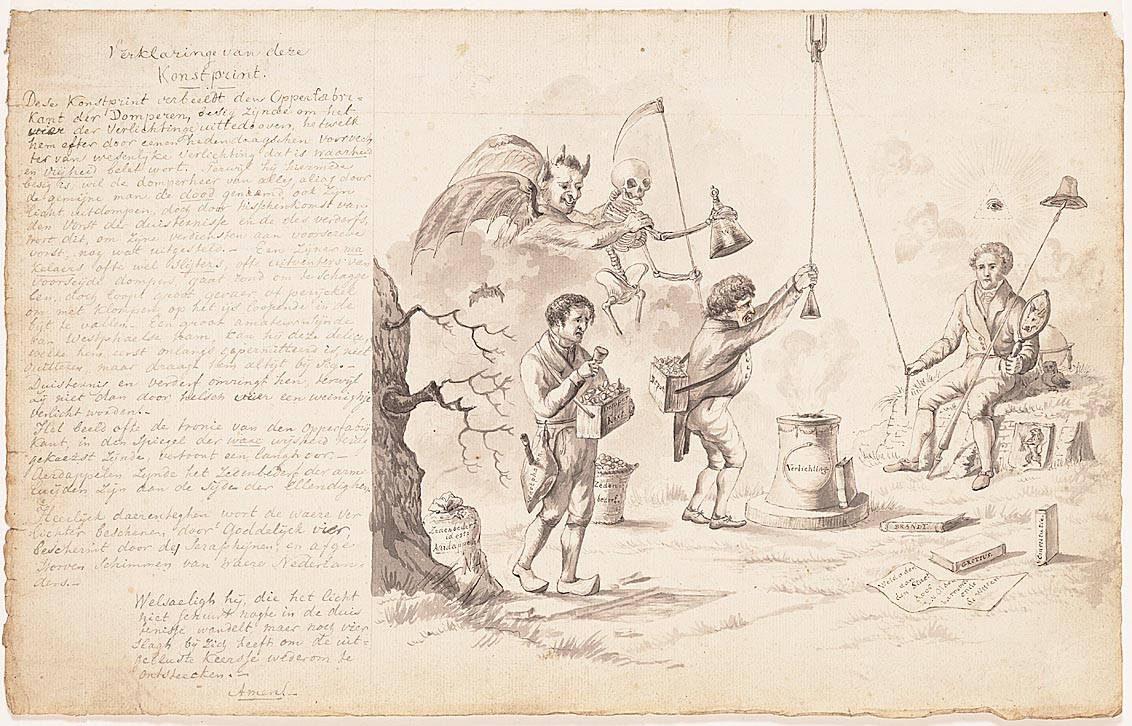 Verklaringe van deze
Konstprint.
Dese Konstprint verbeeldt den Opperfabri-
kant der Domperen, besig zijnde om het
vier der Verlichtinge uittedooven, hetwelk
hem efter door eenen hedendaagschen voorvegh-
ter van wesenlijke verlichting dat is waarheid
en vrijheid belet wort. Terwijl hij hiermede
besig is, wil de domperheer van alles, alias door
de gemijne man de dood genaamd, ook zijn
licht uitdompen, doch door tusschenkomst van
den Vorst der duisternisse en des verderfs,
wort dit, om zijne verdiensten aan voorseide
vorst, nog wat uitgesteld. — Een zijner ma
kelaers ofte wel slijters, ofte uitventers van
voorseijde dompers gaat rond op
len, doch loopt groot gevaer of perijckel
om met klompen op het ijs loopende
te vallen. — Een groot amateur zijnde
van Westphaelse ham, kan hij deze
welke hem eerst onlangs is, niet
maar draagt hem altijd bij zig. —
Duisternis en verderf omringt hen, terwijl
zij niet dan door helsch vier een weinighje
verlicht worden. —
Het beeld ofte de tronie van den Opperfabrij
kant, in den spiegel der waere wijsheid
zijnde, vertoont een langhoor. —
Aerdappelen zijnde het Zedenbederf der arme
zijn aan de zijde der Ellendighen
Heerlijck daerentegen wort de waere ver
lichter beschenen, voor Goddelijck vier
beschermt door de Serafhijnen, en afge
storven schimmen van waere Nederlan-
ders. —
Welsaeligh hij, die het licht
niet schuwt nogte in de duis
ternisse wandelt, maer noch vier
slagh bij zich heeft om de uit-
gebluste keersse wederom te
ontsteecken. —
Amen! —
Zeden
bederf
Zedenbeder
id est
Aardappen
Verlichting
BRANDT
GROTIUS
Constitutie